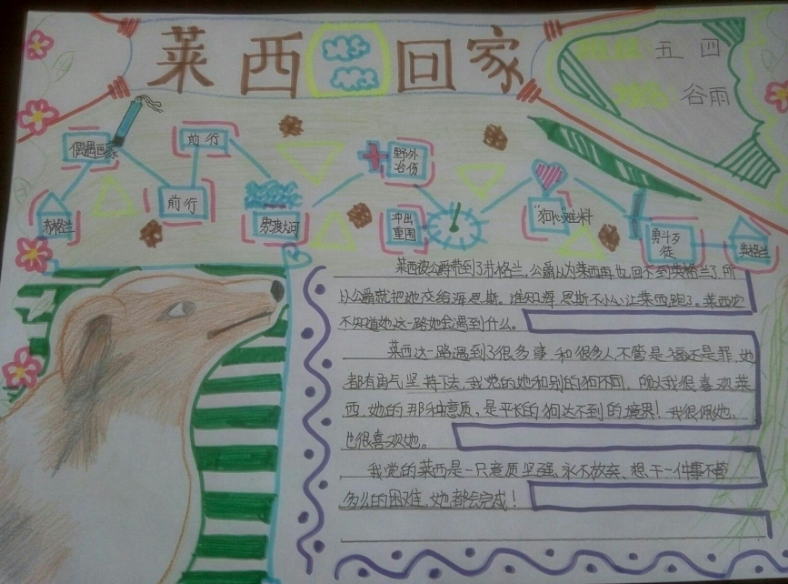 莱西回家
五四
谷雨
偶遇画家
前行
前行
苏格兰
勇渡大河
野外
治伤
冲出
重围
"狗"心难料
勇斗歹
徒
英格兰
莱西被公爵带到了苏格兰,公爵以为莱西再也回不到英格兰了,所
以公爵就把她交给海恩斯。谁知海恩斯不小心让莱西跑了。莱西也
不知道她这一路她会遇到什么。
莱西这一路遇到了很多事和很多人不管是福还是罪,她
都有勇气坚持下去,我觉的她和别的狗不同,所以我很喜欢莱
西,她的那种意质,是平长的狗达不到的境界!我很佩她、
也很喜欢她。
我觉的莱西是一只意质坚强、永不放弃、想干一件事不管
多么的困难,她都会完成!